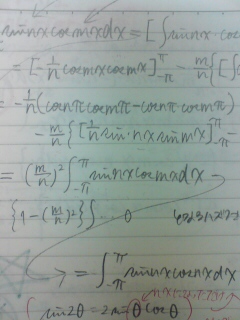 sin nx cos mx dx = [∫ sin nx · cos
= [-1/n cos mx cos nx]_{-π}^{π} - m/n {[∫
= -1/n (cos nπ cos mπ - cos nπ cos mπ)
- m/n {[1/n sin nx sin mx]_{-π}^{π} -
= (m/n)² ∫_{-π}^{π} sin nx cos mx dx -
{1 - (m/n)²} ∫ ... 0
→ = ∫_{-π}^{π} sin nx cos nx dx
(sin 2θ = 2 sin θ cos θ